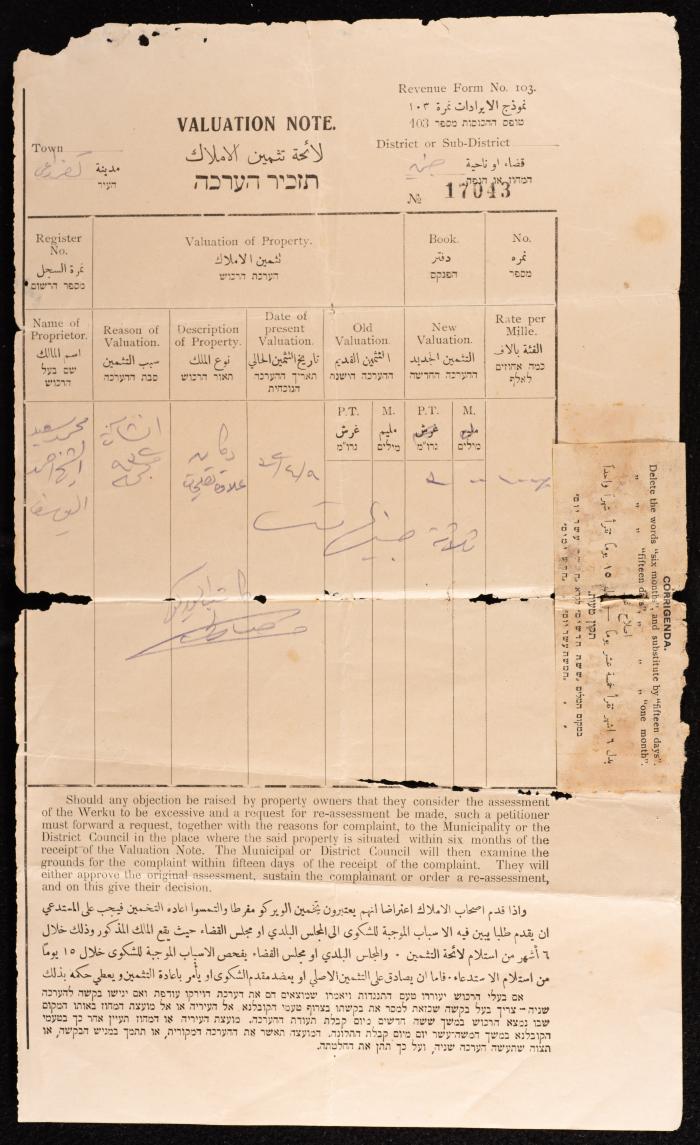 Revenue Form No. 103.
نموذج الايرادات نمرة ١٠٣
טופס ההכנסות מספר 103
VALUATION NOTE.
لائحة تثمين الاملاك
תזכיר הערכה
Town
مدينة
העיר
District or Sub-District
قضاء او ناحية
המחוז או הנפה
№ 17043
Register No.
نمرة السجل
מספר הרשום
Valuation of Property.
تثمين الاملاك
הערכת הרכוש
Book.
دفتر
הפנקס
No.
نمره
מספר
Name of Proprietor.
اسم المالك
שם בעל הרכוש
Reason of Valuation.
سبب التثمين
סבת ההערכה
Description of Property.
نوع الملك
תאור הרכוש
Date of present Valuation.
تاريخ التثمين الحالي
תאריך ההערכה הנוכחית
Old Valuation.
التثمين القديم
ההערכה הישנה
New Valuation.
التثمين الجديد
ההערכה החדשה
Rate per Mille.
الفئة بالالف
כמה אחוזים לאלף
P.T. M. P.T. M.
غرش مليم غرش مليم
גרו"מ מילים גרו"מ מילים
محمد سعيد
الشيخ احمد
دكان
ثلاثة
CORRIGENDA.
Delete the words "six months" and substitute by "fifteen days".
" " " "fifteen days" " " " "one month".
اصلاح
بدل ٦ اشهر تقرأ خمسة عشر يوماً
١٥ يوماً تقرأ شهراً واحداً
תקון טעות.
במקום המלים
Should any objection be raised by property owners that they consider the assessment
of the Werku to be excessive and a request for re-assessment be made, such a petitioner
must forward a request, together with the reasons for complaint, to the Municipality or the
District Council in the place where the said property is situated within six months of the
receipt of the Valuation Note. The Municipal or District Council will then examine the
grounds for the complaint within fifteen days of the receipt of the complaint. They will
either approve the original assessment, sustain the complainant or order a re-assessment,
and on this give their decision.
واذا قدم اصحاب الاملاك اعتراضا انهم يعتبرون تخمين الويركو مفرطا والتمسوا اعادة التخمين فيجب على المستدعي
ان يقدم طلبا يبين فيه الاسباب الموجبة للشكوى الى المجلس البلدي او مجلس القضاء حيث يقع المالك المذكور وذلك خلال
٦ أشهر من استلام لائحة التثمين ٠ والمجلس البلدي او مجلس القضاء يفحص الاسباب الموجبة للشكوى خلال ١٥ يوماً
من استلام الاستدعاء ٠ فاما ان يصادق على التثمين الاصلي او يعضد مقدم الشكوى او يأمر باعادة التثمين ويعطي حكمه بذلك
אם בעלי הרכוש יעוררו טעם התנגדות ויאמרו שמוצאים הם את הערכת הוירקו עודפת ואם יגישו בקשה להערכה
שניה – צריך בעל בקשה שכזאת למסר את בקשתו בצרוף טעמי הקובלנא אל העיריה או אל מועצת המחוז באותו המקום
שבו נמצא הרכוש במשך ששה חדשים מיום קבלת תעודת ההערכה. מועצת העיריה או המחוז תעיין אחר כך בטעמי
הקובלנא במשך חמשה-עשר יום מיום קבלת התלונה. המועצה תאשר את ההערכה המקורית, או תתמך במגיש הבקשה, או
תצוה שתעשה הערכה שניה, ועל כך תתן את החלטתה.